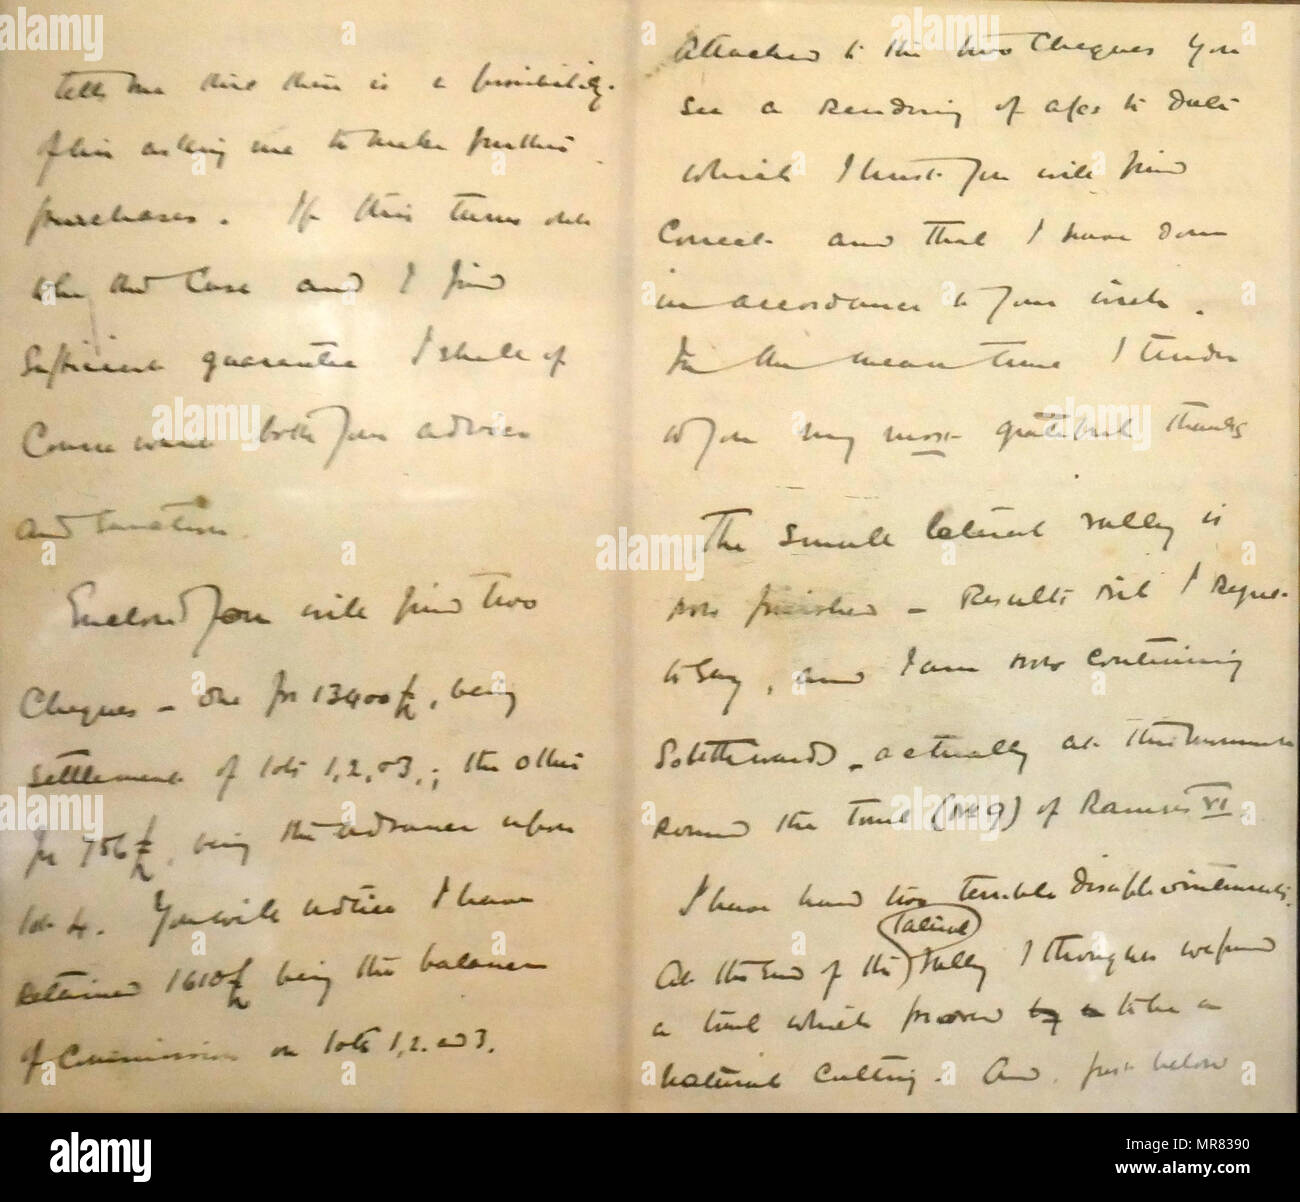 tells me that there is a possibility
of his asking me to make further
purchases. If this turns out
to be the case and I find
sufficient guarantee I shall of
course want both your advice
and sanction.
Enclosed you will find two
Cheques – one for 13400 £, being
settlement of lots 1, 2, & 3,; the other
for 756 £, being the advance upon
lot 4. You will notice I have
retained 1610 £ being the balance
of Commission on lots 1, 2. and 3.
Attached to the two Cheques you
see a rendering of a/cs to date
which I trust you will find
Correct and that I have done
in accordance to your wish.
In the mean time I tender
to you my most grateful thanks
The small lateral valley is
now finished – Results nil I regret
to say, and I am now continuing
Southwards – actually at this moment
round the tomb (No 9) of Ramses VI
I have had two terrible disappointments.
At the end of the lateral valley I thought we found
a tomb which proved to be a
natural cutting. And, just below
alamy
a
alamy stock photo
alamy
Image ID: MR8390
www.alamy.com